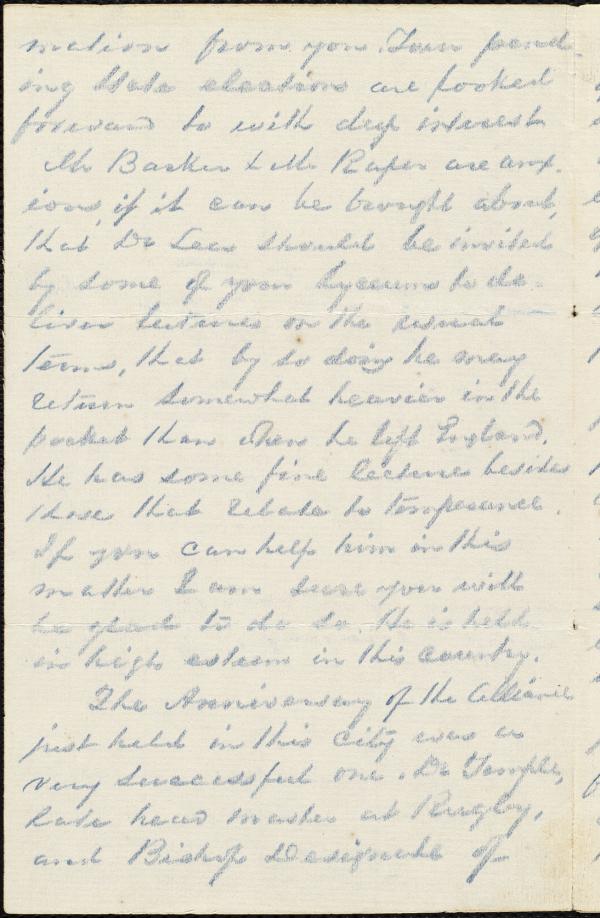 mation from you. Your pend-
ing State elections are looked
forward to with deep interest
Mr Barker & Mr Raper are anx-
ious, if it can be brought about,
that Dr Lees should be invited
by some of your Lyceums to de-
liver lectures on the usual
terms, that by so doing he may
return somewhat heavier in the
pocket than when he left England.
He has some fine lectures besides
those that relate to temperance.
If you can help him in this
matter I am sure you will
be glad to do so. He is held
in high esteem in this country.
The Anniversary of the Alliance
just held in this City was a
very successful one. Dr Temple,
late head master at Rugby,
and Bishop Designate of